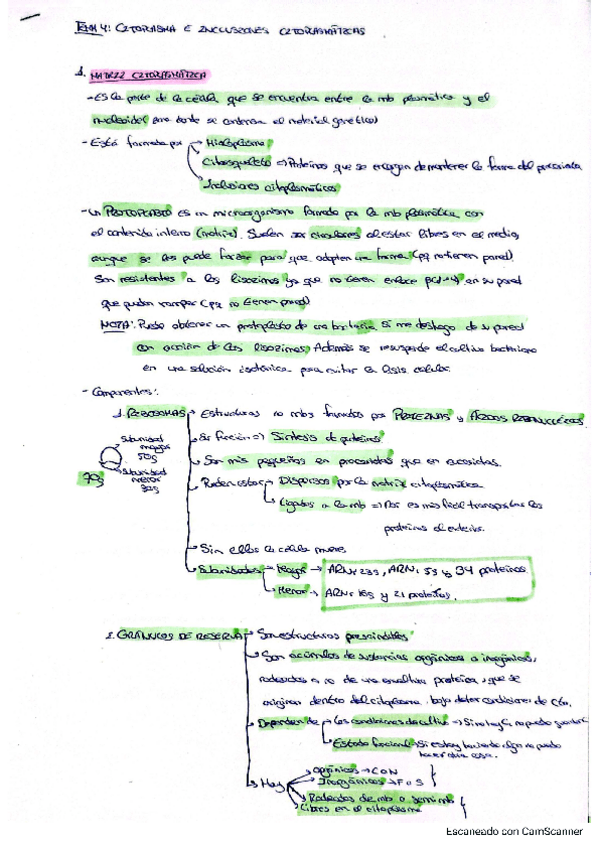 TEMA 4: CITOPLASMA E INCLUSIONES CITOPLASMÁTICAS
1. MATRIZ CITOPLASMÁTICA
- Es la parte de la célula que se encuentra entre la mb plasmática y el
nucleoide (zona donde se contiene el material genético)
- Está formada por → Hialoplasma
Citoesqueleto ⇒ Proteínas que se encargan de mantener la forma del procariota
Inclusiones citoplasmáticas
- Un PROTOPLASTO es un microorganismo formado por la mb plasmática con
el contenido interno (matriz). Suelen ser circulares al estar libres en el medio,
aunque se les puede forzar para que adopten una forma (pq no tienen pared)
Son resistentes a las lisozimas ya que no tienen enlace β(1→4) en su pared
que puedan romper (pq no tienen pared)
NOTA: Puedo obtener un protoplasto de una bacteria si me deshago de su pared
con acción de las lisozimas. Además se resuspende el cultivo bacteriano
en una solución isotónica para evitar la lisis celular.
- Componentes:
1. RIBOSOMAS → Estructuras no mbs formadas por PROTEÍNAS y ÁCIDOS RIBONUCLÉICOS
Su función ⇒ Síntesis de proteínas
Son más pequeños en procariotas que en eucariotas.
Pueden estar → Dispersos por la matriz citoplasmática
Ligados a la mb ⇒ Así es más fácil transportar las
proteínas al exterior.
Sin ellos la célula muere
Subunidades → Mayor → ARNr 23S, ARNr 5S y 34 proteínas
Menor → ARNr 16S y 21 proteínas.
Subunidad
mayor
50S
70S
Subunidad
menor
30S
2. GRÁNULOS DE RESERVA → Son estructuras prescindibles
Son acúmulos de sustancias orgánicas o inorgánicas,
rodeadas o no de una envoltura proteica, que se
originan dentro del citoplasma bajo determ condiciones de cto.
Dependen de → Las condiciones de cultivo → Si no hay C no puedo guardar
Estado funcional → Si estoy haciendo algo no puedo
hacer otra cosa.
Hay → Orgánicos → C o N
Inorgánicos → P o S
Rodeados de mb o semi mb
Libres en el citoplasma
Escaneado con CamScanner